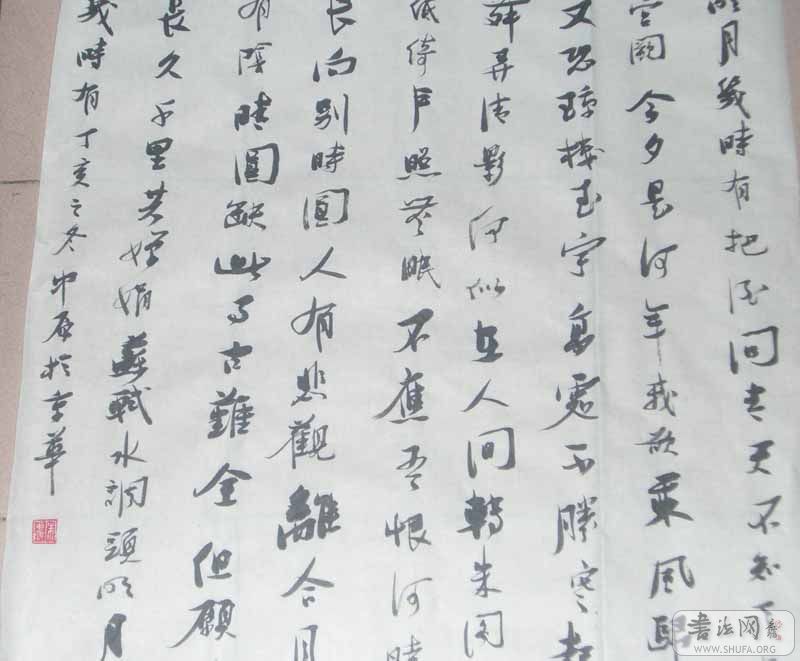 明月幾時有把酒問青天不知天
宮闕今夕是何年我欲乘風歸
又恐瓊樓玉宇高處不勝寒起
舞弄清影何似在人間轉朱閣
低綺戶照無眠不應恨何時
長向別時圓人有悲觀離合月
有陰晴圓缺此事古難全但願
長久千里共嬋娟蘇軾水調頭明月
幾時有丁亥之冬於京華
書法网
WWW.SHUFA.ORG